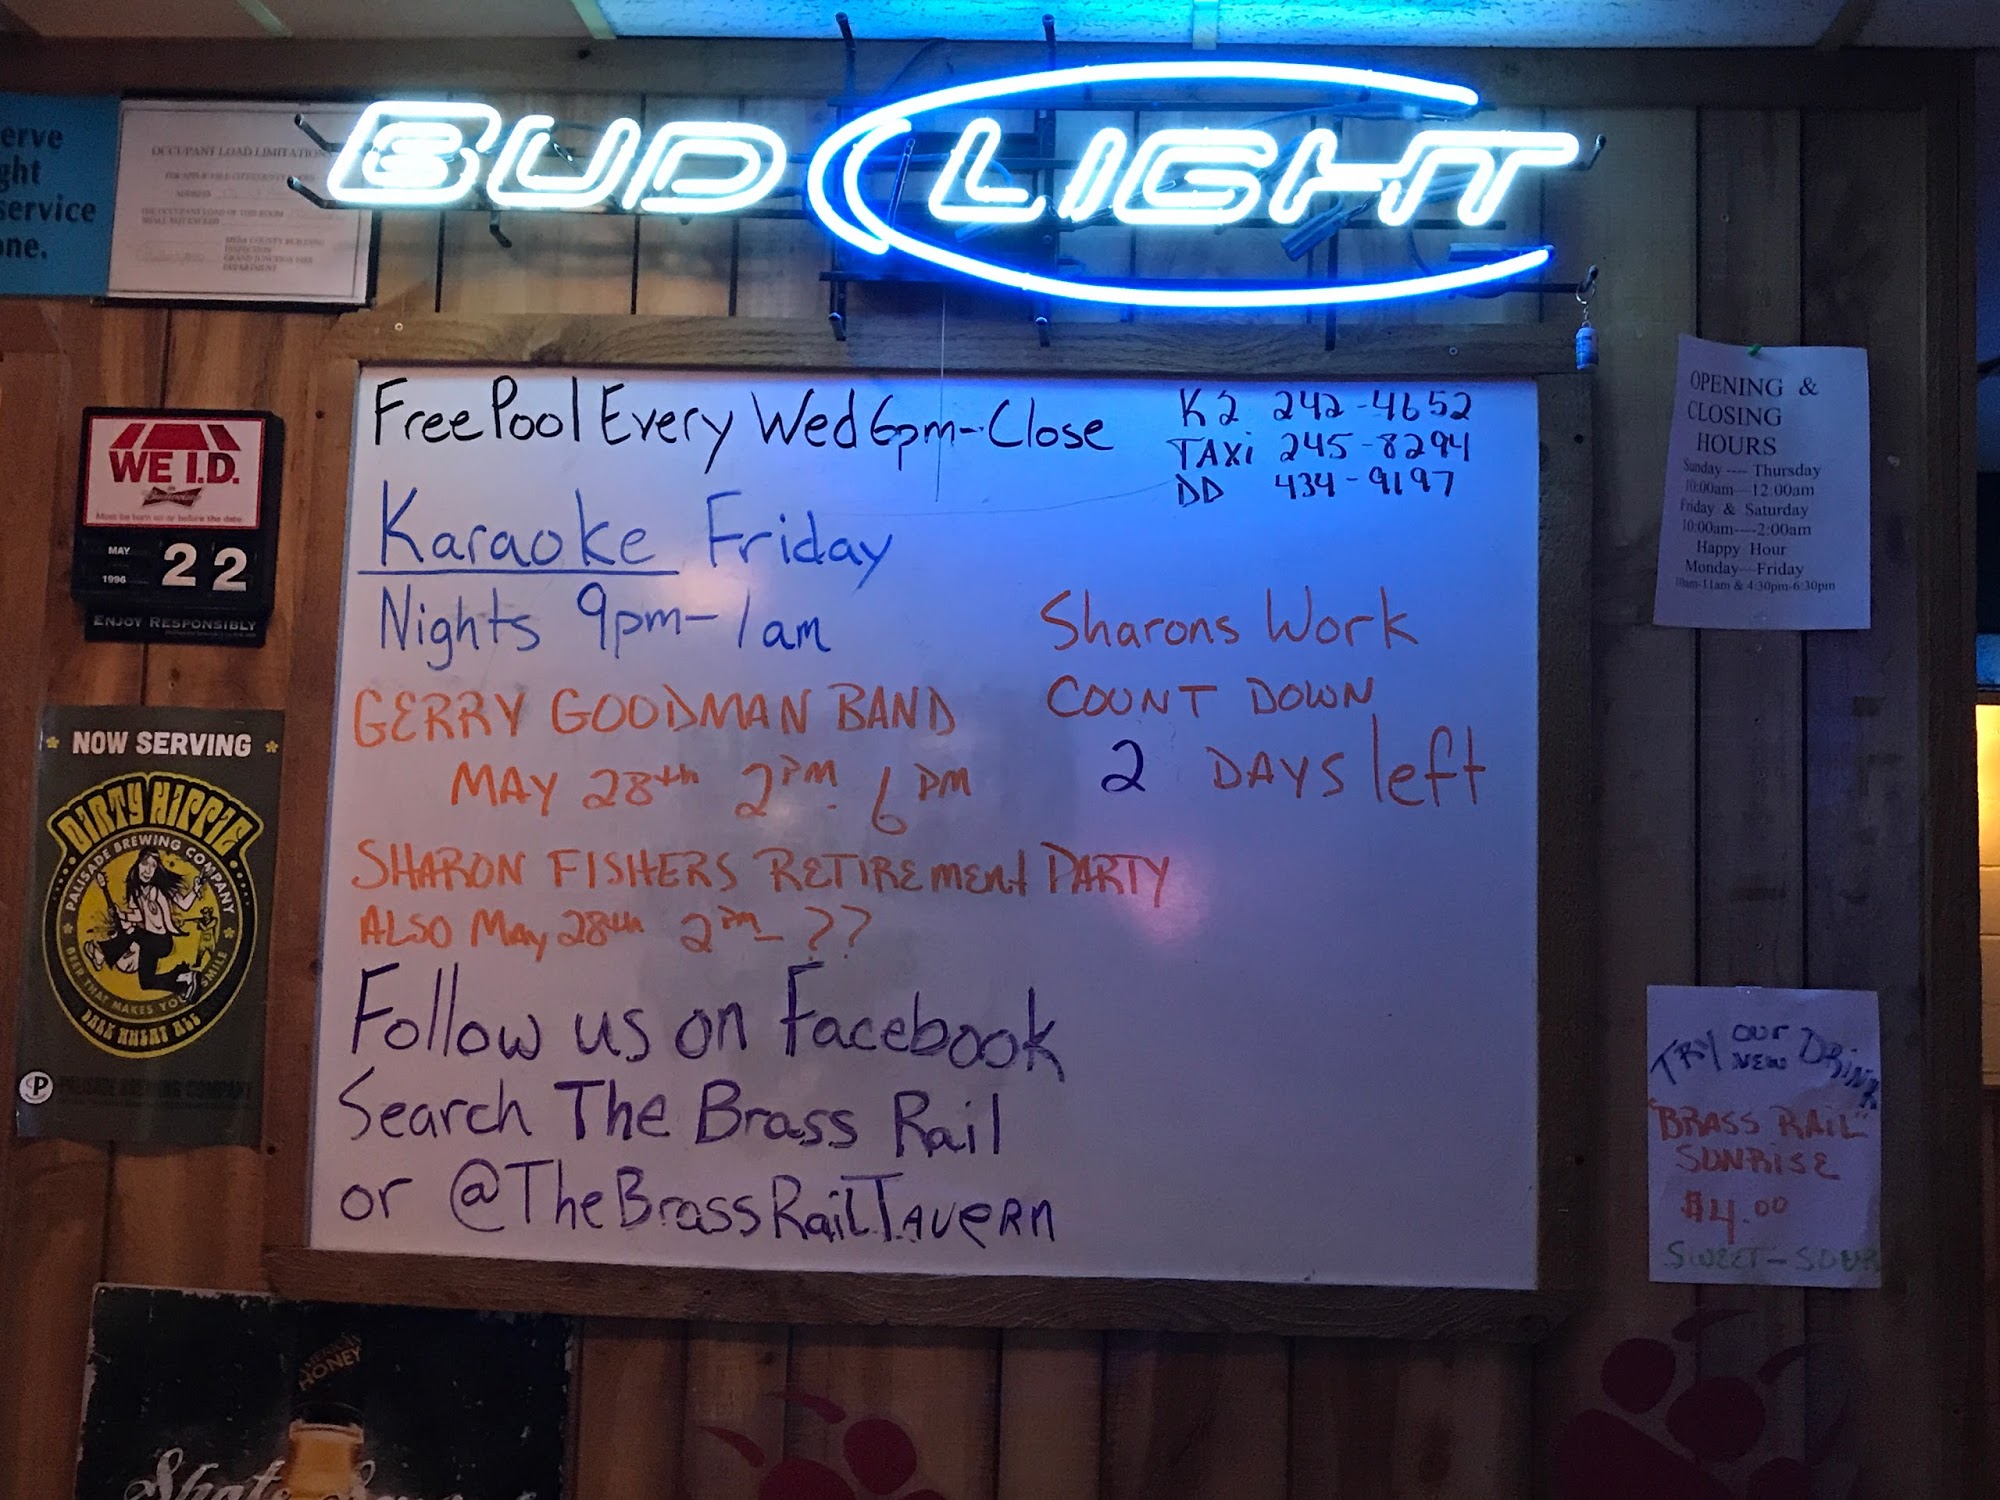 BUD LIGHT
erve
ght
service
one.
OCCUPANT LOAD LIMITATION
ADDRESS
THE OCCUPANT LOAD OF THIS ROOM
SHALL NOT EXCEED
MESA COUNTY BUILDING
INSPECTION
GRAND JUNCTION FIRE
DEPARTMENT
WE I.D.
Budweiser
Must be born on or before the date
MAY
1996
22
ENJOY RESPONSIBLY
★ NOW SERVING ★
DIRTY HIPPIE
PALISADE BREWING COMPANY
BEER THAT MAKES YOU SMILE
DARK WHEAT ALE
P PALISADE BREWING COMPANY
HONEY
Free Pool Every Wed 6pm-Close
K2 242-4652
TAXi 245-8294
DD 434-9197
Karaoke Friday
Nights 9pm-1am
GERRY GOODMAN BAND
MAY 28th 2PM - 6PM
Sharons Work
COUNT DOWN
2 DAYS left
SHARON FISHERS RETIREMENT PARTY
ALSO May 28th 2PM- ??
Follow us on Facebook
Search The Brass Rail
or @TheBrassRailTavern
OPENING &
CLOSING
HOURS
Sunday ---- Thursday
10:00am---12:00am
Friday & Saturday
10:00am----2:00am
Happy Hour
Monday---Friday
10am-11am & 4:30pm-6:30pm
TRY OUR NEW DRiNK
"BRASS RAIL"
SUNRiSE
$4.00
SWEET-SOUR